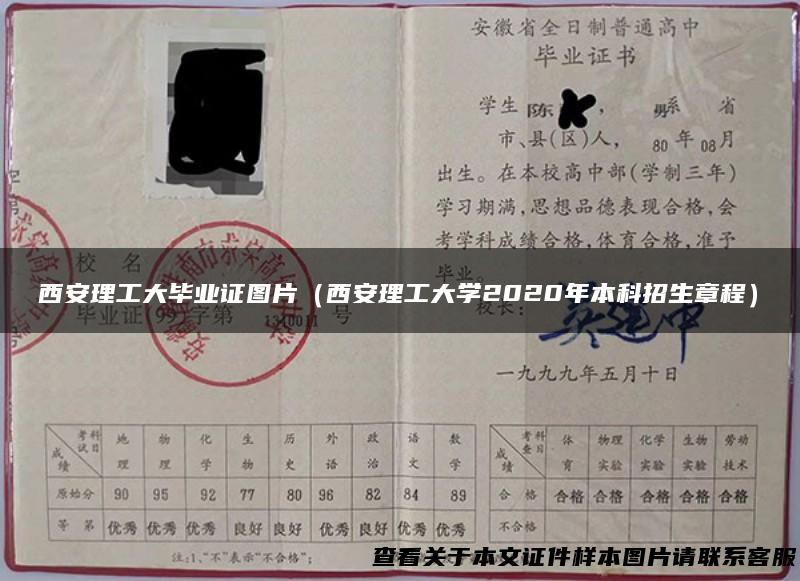 安徽省全日制普通高中
毕业证书
学生 陈 , 男系 省
市、县(区)人, 80 年 08 月
出生。在本校高中部(学制三年)
学习期满,思想品德表现合格,会
考学科成绩合格,体育合格,准予
毕业。
校 名
西安理工大毕业证图片(西安理工大学2020年本科招生章程)
毕业证(99)字第 1310011 号
校长:
一九九九年五月十日
考试科目 地理 物理 化学 生物 历史 外语 政治 语文 数学
成绩
原始分 90 95 92 77 80 96 82 84 89
等第 优秀 优秀 优秀 良好 良好 优秀 良好 优秀 优秀
考查科目 体育 物理实验 化学实验 生物实验 劳动技术
成绩
合格 合格 合格 合格 合格 合格
不合格
注:1、“不”表示“不合格”;
查看关于本文证件样本图片请联系客服